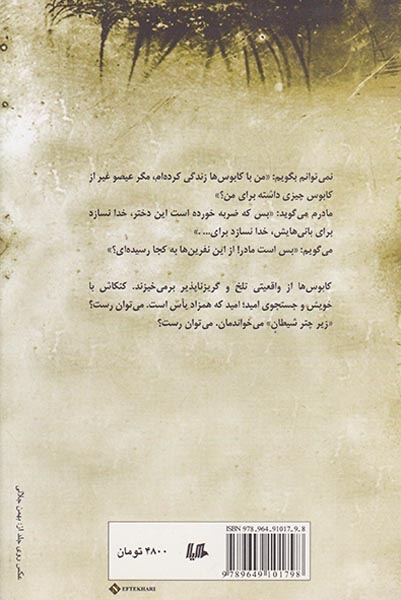 نمی‌توانم بگویم: «من با کابوس‌ها زندگی کرده‌ام، مگر عیصو غیر از
کابوس چیزی داشته برای من؟»
مادرم می‌گوید: «بس که ضربه خورده است این دختر، خدا نسازد
برای بانی‌هایش، خدا نسازد برای... .»
می‌گویم: «بس است مادر! از این نفرین‌ها به کجا رسیده‌ای؟»
کابوس‌ها از واقعیتی تلخ و گریزناپذیر برمی‌خیزند. کنکاش با
خویش و جستجوی امید؛ امید که همزاد یأس است. می‌توان رست؟
«زیر چتر شیطان» می‌خواندمان. می‌توان رست؟
عکس روی جلد از: بهمن جلالی
ISBN 978.964.91017.9.8
هیلا
۴۸۰۰ تومان
9 789649 101798
EFTEKHARI